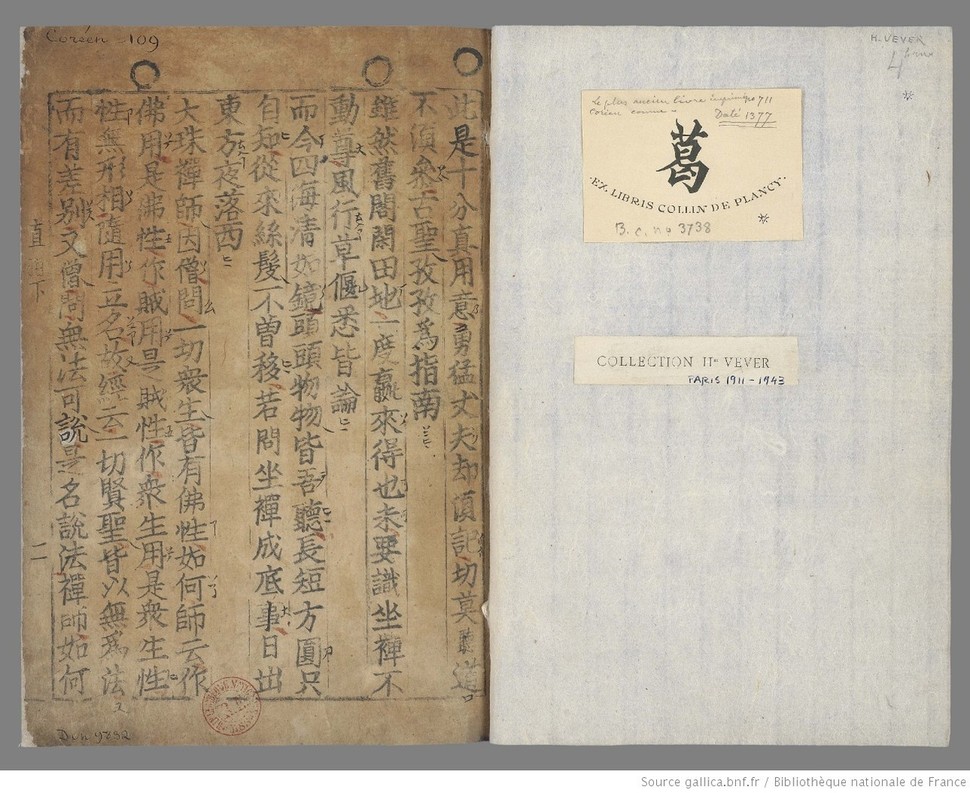 Coréen 109
此是十分真用意勇猛丈夫却須記切莫聽道
不須參古聖孜孜爲指南
雖然舊閣閑田地一度贏來得也未要識坐禪不
動尊風行草偃悉皆論
而今四海清如鏡頭頭物物皆吾聽長短方圓只
自知從來絲髮不曾移若問坐禪成底事日出
東方夜落西
大珠禪師因僧問一切衆生皆有佛性如何師云作
佛用是佛性作賊用是賊性作衆生用是衆生性
性無形相隨用立名故經云一切賢聖皆以無爲法
而有差别又僧問無法可說是名說法禪師如何
直指下 二
Don 9832
H. VEVER
Le plus ancien livre imprimé
Coréen connu
Daté 1377
711
葛
EX LIBRIS COLLIN DE PLANCY
3738
COLLECTION Hri VEVER
PARIS 1911-1943
Source gallica.bnf.fr / Bibliothèque nationale de France